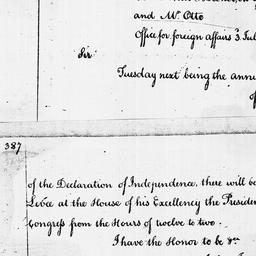 and Mr. Otto
Office for foreign affairs 3 Jul
Sir
Tuesday next being the anni
387
of the Declaration of Independence, there will be
Levee at the House of his Excellency the Presiden
Congress from the Hours of twelve to two.
I have the Honor to be &ca